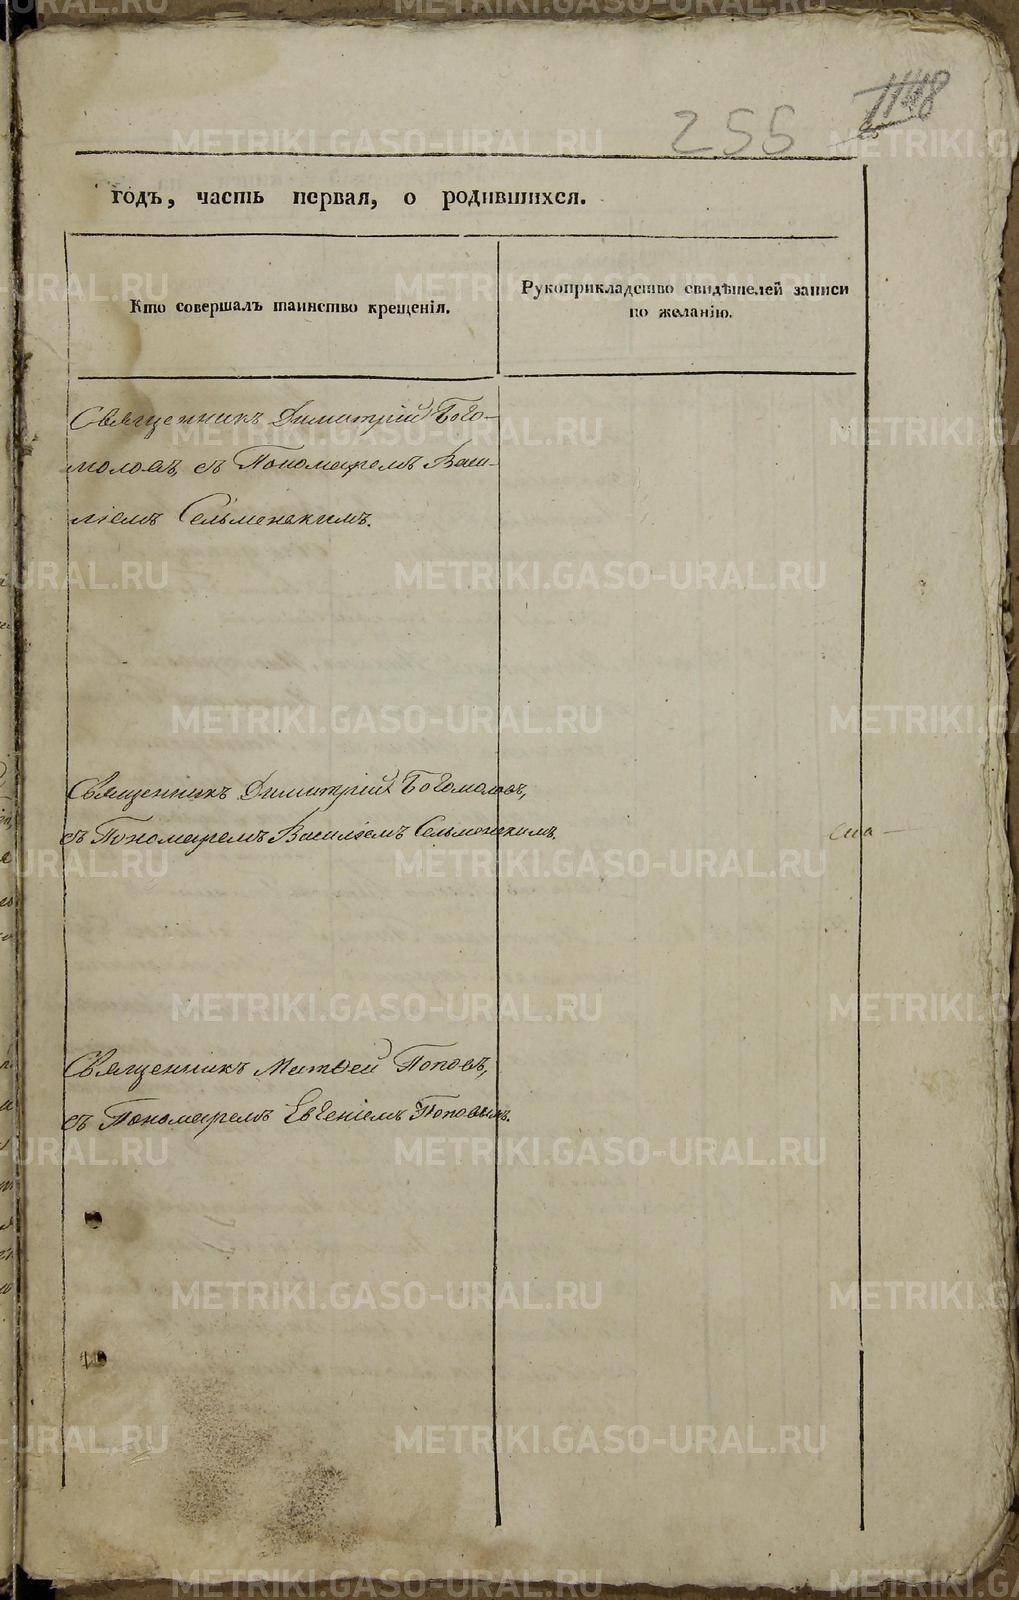 255
годъ, часть первая, о родившихся.
Кто совершалъ таинство крещенія.
Рукоприкладство свидѣтелей записи
по желанію.
Священникъ Димитрій Бого-
моловъ, съ Пономаремъ Васи-
ліемъ Сельменскимъ.
Священникъ Димитрій Богомоловъ,
съ Пономаремъ Василіемъ Сельменскимъ.
Священникъ Матѳей Поповъ,
съ Пономаремъ Евгеніемъ Поповымъ.
METRIKI.GASO-URAL.RU